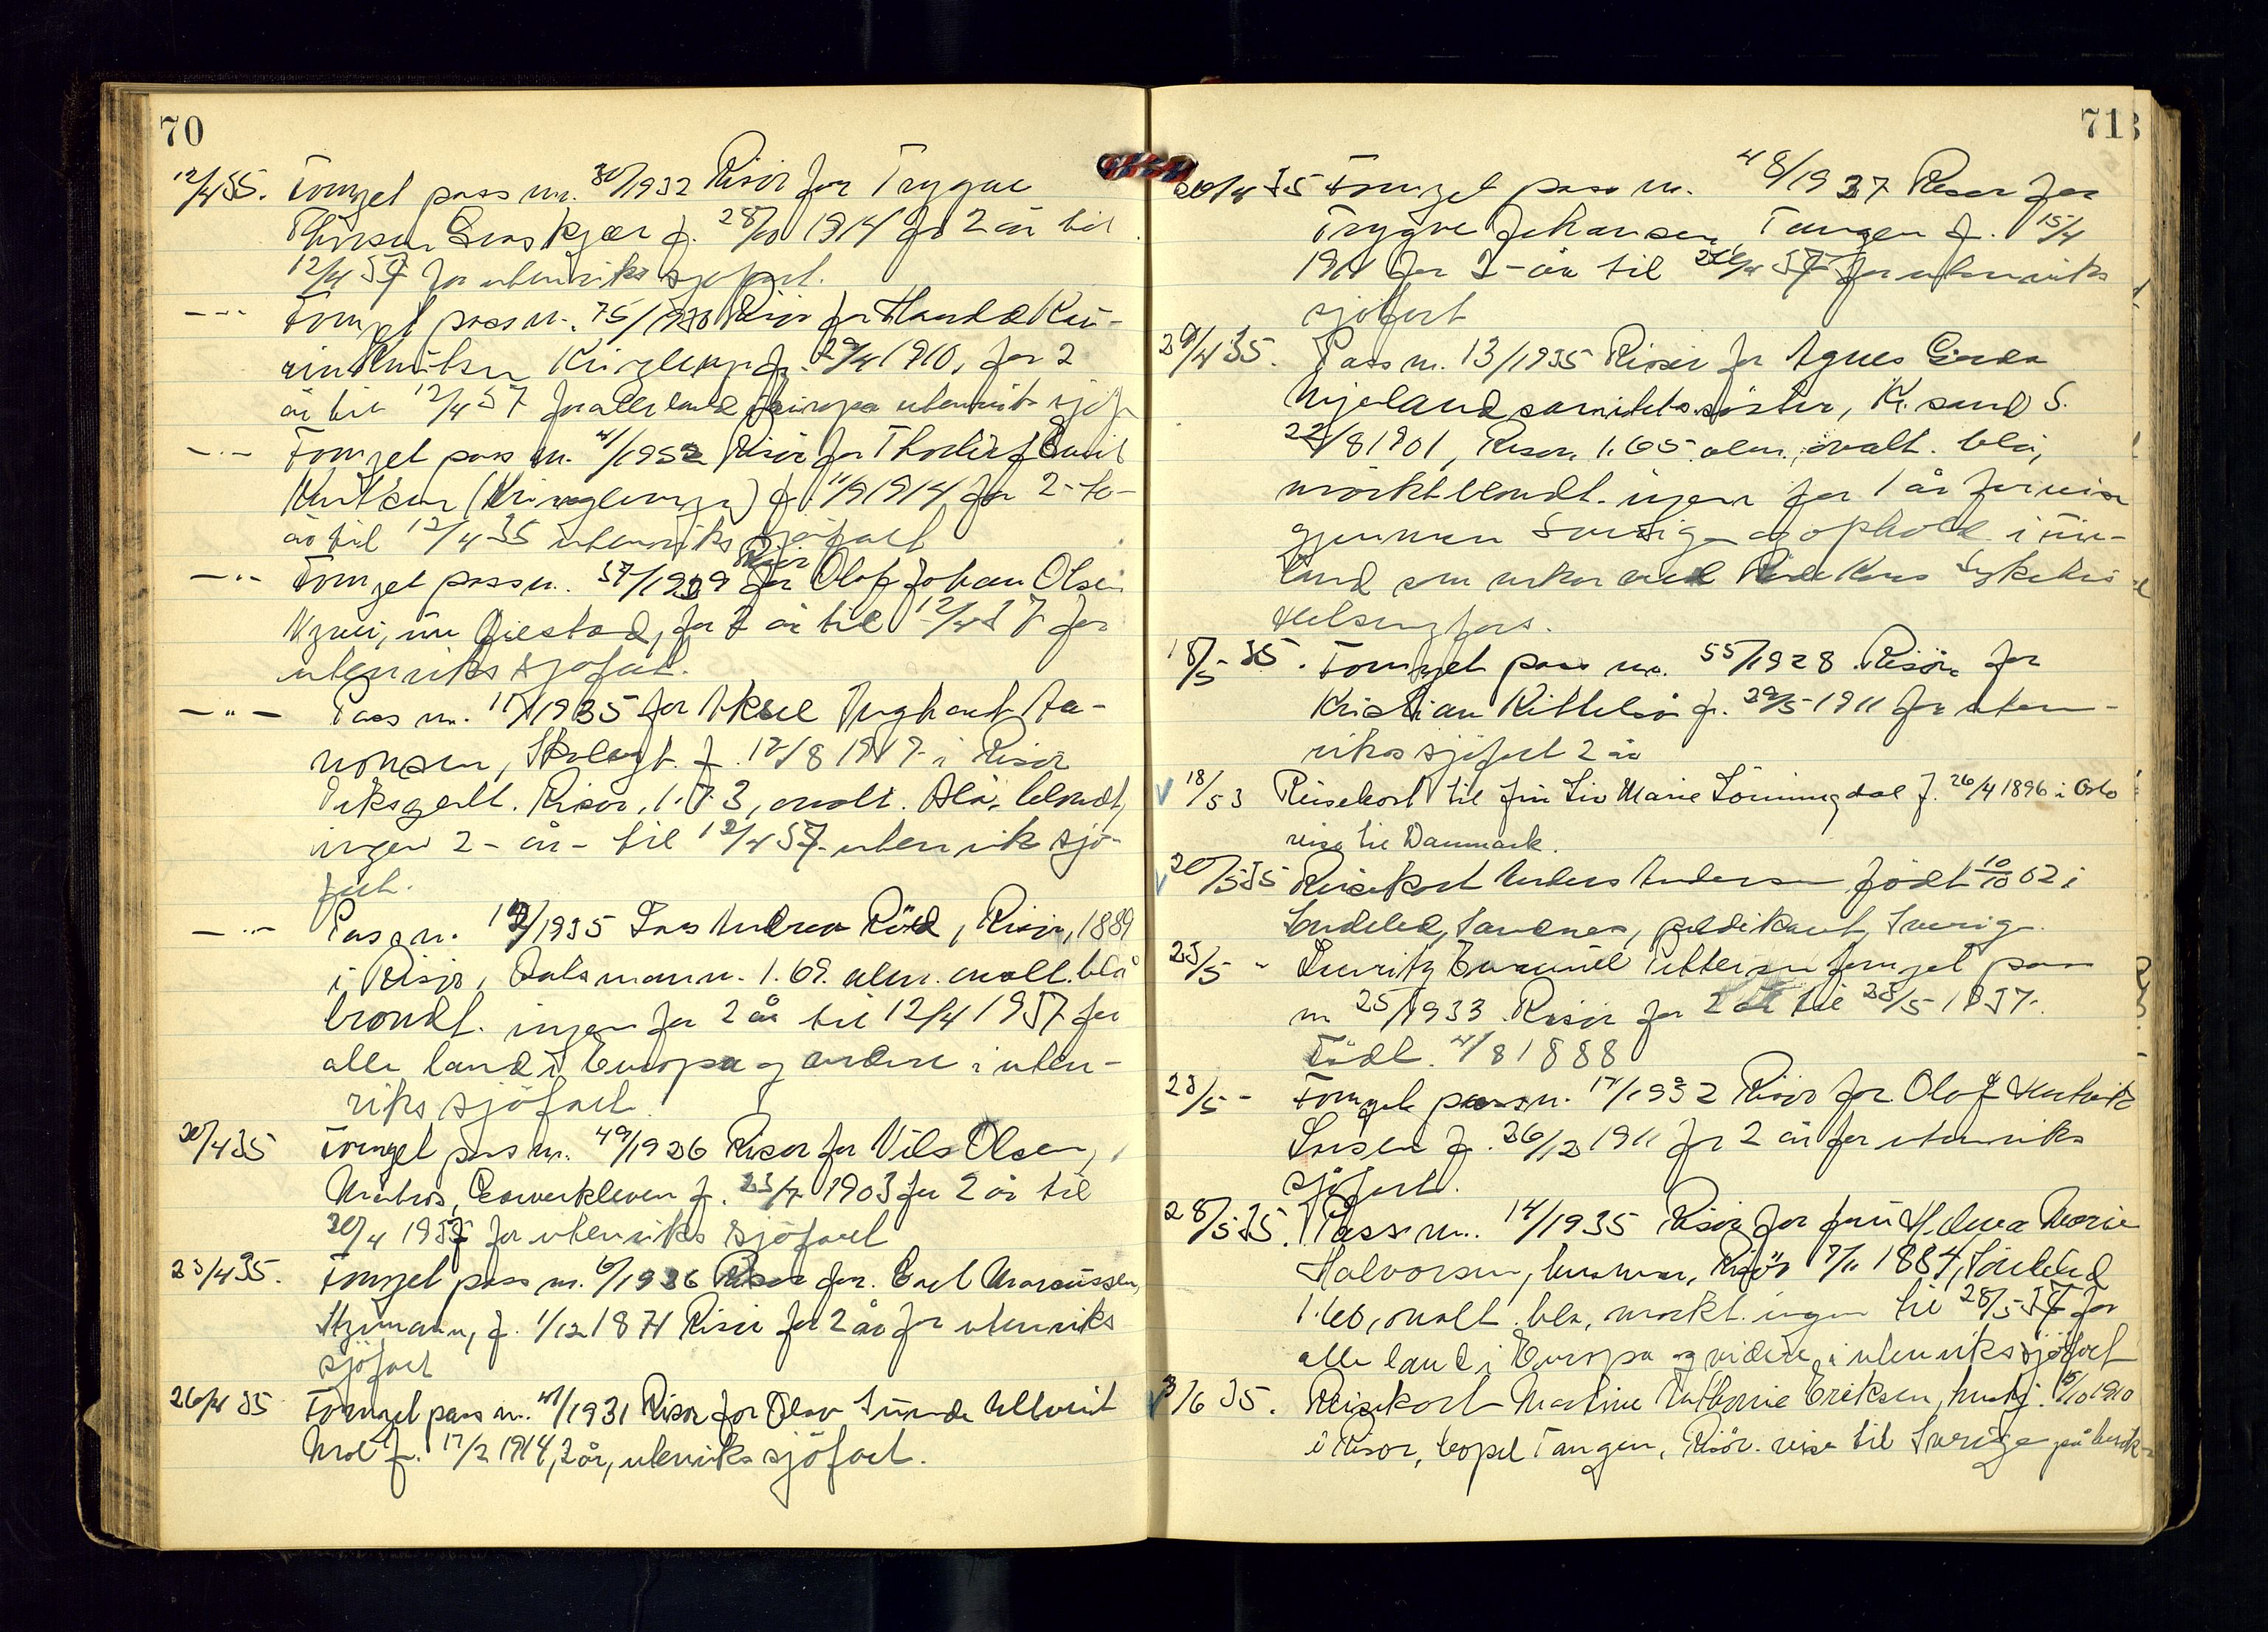 70
12/4 35. Fornyet pass nr. 30/1932 Risør for Trygve
f. 28/10 1914 for 2 år til
12/4 37 for utenriks sjøfart.
Fornyet pass nr. 75/1930 Risør for Harald Kåre
Knutsen Kringlemyr f. 29/4 1910, for 2
år til 12/4 37 for alle land i Europa utenriks sjøf
Fornyet pass nr. 41/1932 Risør for Thorleif Emil
Knutsen (Kringlemyr) f. 11/9 1914 for 2-to-
år til 12/4 35 utenriks sjøfart
Fornyet pass nr. 57/1929 Risør for Olaf Johan Olsen
nu Gjestad, for 2 år til 12/4 37 for
utenriks sjøfart.
— " — Pass nr. 11/1935 for Aksel Aa-
nonsen, f. 12/8 1917 i Risør
Risør, 1.73, ovalt. Blå, blondt,
ingen 2 - år - til 12/4 37 utenriks sjø-
fart.
Pass nr. 12/1935 Lars Andreas Röed, Risør, 1889
i Risør, Båtsmann. 1.69. alm. ovalt. blå
brondt. ingen for 2 år til 12/4 1937 for
alle land i Europa og videre i uten-
riks sjöfart.
20/4 35 Fornyet pass nr. 49/1926 Risør for Nils Olsen,
Matros, f. 23/7 1903 for 2 år til
20/4 1937 for utenriks sjöfart
23/4 35. Fornyet pass nr. 6/1926 Risør for. Carl Marcussen,
Styrmann, f. 1/12 1871 Risør for 2 år for utenriks
sjöfart
26/4 35 Fornyet pass nr. 41/1931 Risør for Olav
f. 17/2 1914, 2 år, utenriks sjöfart.
71
26/4 35 Fornyet pass nr. 48/1927 Risør for
Trygve Johansen, Tangen f. 15/4
1911 for 2-år til 26/4 37 for utenriks
sjöfart
29/4 35. Pass nr. 13/1935 Risør for Agnes Gerda
Mjeland sanitetssöster, Kr.sand S.
22/8 1901, Risør. 1.65. alm., ovalt. blå,
mörktblondt. ingen for 1 år for reise
gjennem Sverige og ophold i Fin-
land som ved Röde Kors Sykehus
Helsingfors.
18/5 35. Fornyet pass nr. 55/1928. Risör for
Kristian Kittelsen f. 29/5 1911 for uten-
riks sjöfart 2 år
18/5 3 Reisekort til fru Liv Marie Lönningdal f. 26/4 1896 i Oslo
reise til Danmark.
20/5 35 Reisekort Anders Andersen födt 10/10 02 i
Söndeled, Sandnes, predikant, Sverige.
23/5 - Lauritz Emanuel Pettersen fornyet pass
nr 25/1933 Risör for 2 år til 23/5 1937.
Födt. 4/8 1888
23/5 - Fornyet pass nr. 17/1932 Risør for Olaf
Larsen f. 26/12 1911 for 2 år for utenriks
sjöfart.
28/5 35. Pass nr. 14/1935 Risør for fru Helma Marie
Halvorsen, husmor, Risör 7/11 1884, Söndeled
1.60, ovalt. blå, mörkt. ingen til 28/5 37 for
alle land i Europa og videre, i utenriks sjöfart
3/6 35. Reisekort Martine Cathrine Eriksen, hushj. 5/10 1910
i Risør, bopel Tangen, Risör. reise til Sverige på besök